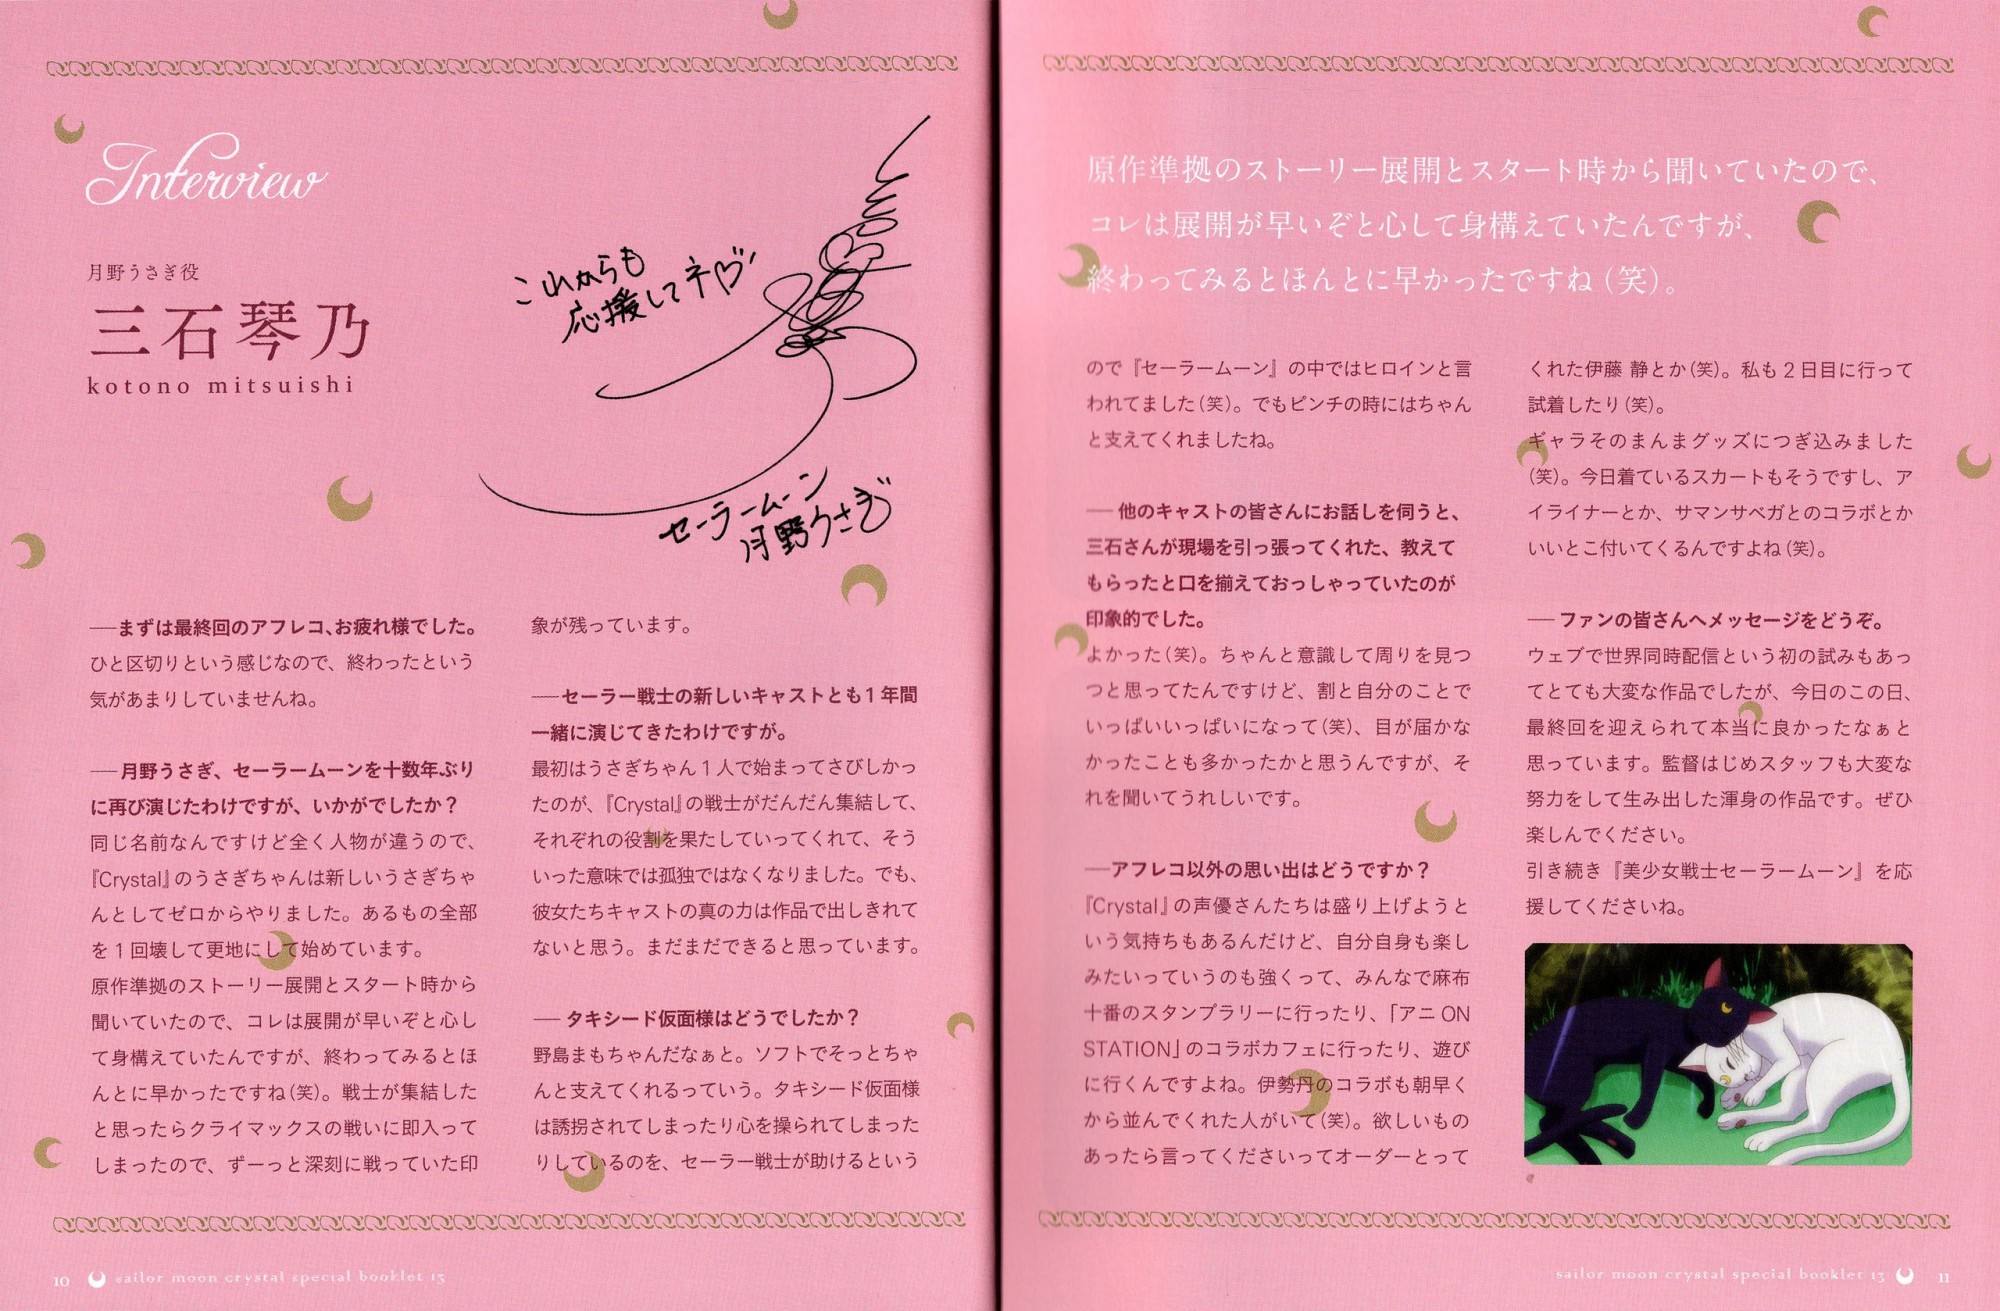 Interview
月野うさぎ役
三石琴乃
kotono mitsuishi
これからも
応援してネ♡
セーラームーン
月野うさぎ
──まずは最終回のアフレコ、お疲れ様でした。
ひと区切りという感じなので、終わったという
気があまりしていませんね。
──月野うさぎ、セーラームーンを十数年ぶり
に再び演じたわけですが、いかがでしたか？
同じ名前なんですけど全く人物が違うので、
『Crystal』のうさぎちゃんは新しいうさぎちゃ
んとしてゼロからやりました。あるもの全部
を1回壊して更地にして始めています。
原作準拠のストーリー展開とスタート時から
聞いていたので、コレは展開が早いぞと心し
て身構えていたんですが、終わってみるとほ
んとに早かったですね（笑）。戦士が集結した
と思ったらクライマックスの戦いに即入って
しまったので、ずーっと深刻に戦っていた印
象が残っています。
──セーラー戦士の新しいキャストとも1年間
一緒に演じてきたわけですが。
最初はうさぎちゃん1人で始まってさびしかっ
たのが、『Crystal』の戦士がだんだん集結して、
それぞれの役割を果たしていってくれて、そう
いった意味では孤独ではなくなりました。でも、
彼女たちキャストの真の力は作品で出しきれて
ないと思う。まだまだできると思っています。
── タキシード仮面様はどうでしたか？
野島まもちゃんだなぁと。ソフトでそっとちゃ
んと支えてくれるっていう。タキシード仮面様
は誘拐されてしまったり心を操られてしまった
りしているのを、セーラー戦士が助けるという
10 sailor moon crystal special booklet 13
原作準拠のストーリー展開とスタート時から聞いていたので、
コレは展開が早いぞと心して身構えていたんですが、
終わってみるとほんとに早かったですね（笑）。
ので『セーラームーン』の中ではヒロインと言
われてました（笑）。でもピンチの時にはちゃん
と支えてくれましたね。
── 他のキャストの皆さんにお話しを伺うと、
三石さんが現場を引っ張ってくれた、教えて
もらったと口を揃えておっしゃっていたのが
印象的でした。
よかった（笑）。ちゃんと意識して周りを見つ
つと思ってたんですけど、割と自分のことで
いっぱいいっぱいになって（笑）、目が届かな
かったことも多かったかと思うんですが、そ
れを聞いてうれしいです。
──アフレコ以外の思い出はどうですか？
『Crystal』の声優さんたちは盛り上げようと
いう気持ちもあるんだけど、自分自身も楽し
みたいっていうのも強くって、みんなで麻布
十番のスタンプラリーに行ったり、「アニON
STATION」のコラボカフェに行ったり、遊び
に行くんですよね。伊勢丹のコラボも朝早く
から並んでくれた人がいて（笑）。欲しいもの
あったら言ってくださいってオーダーとって
くれた伊藤 静とか（笑）。私も2日目に行って
試着したり（笑）。
ギャラそのまんまグッズにつぎ込みました
（笑）。今日着ているスカートもそうですし、ア
イライナーとか、サマンサベガとのコラボとか
いいとこ付いてくるんですよね（笑）。
── ファンの皆さんへメッセージをどうぞ。
ウェブで世界同時配信という初の試みもあっ
てとても大変な作品でしたが、今日のこの日、
最終回を迎えられて本当に良かったなぁと
思っています。監督はじめスタッフも大変な
努力をして生み出した渾身の作品です。ぜひ
楽しんでください。
引き続き『美少女戦士セーラームーン』を応
援してくださいね。
sailor moon crystal special booklet 13 11